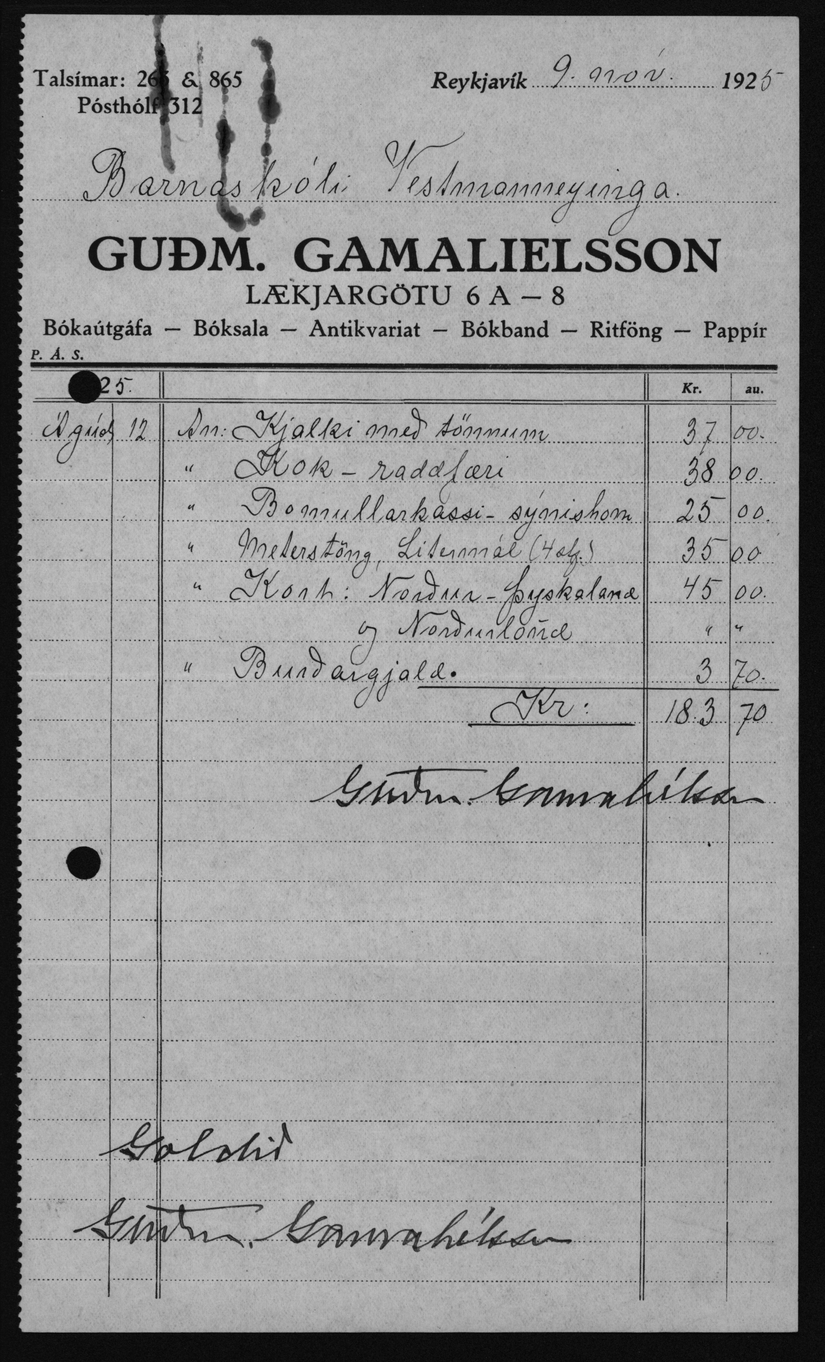 Talsímar: 265 & 865
Pósthólf 312
Reykjavík 9. nóv. 1925
Barnaskóli Vestmanneyinga.
GUÐM. GAMALIELSSON
LÆKJARGÖTU 6 A – 8
Bókaútgáfa — Bóksala — Antikvariat — Bókband — Ritföng — Pappír
P. Á. S.
25. Kr. au.
Ágúst 12 An: Kjalki með tönnum 37 00.
" Kok - raddfæri 38 00.
" Bomullarkassi - sýnishorn 25 00.
" Meterstöng, Litermál (4 stk.) 35 00
" Kort: Norður-Þyskaland 45 00.
og Norðurlönd " "
" Burðargjald. 3 70.
Kr: 183 70
Guðm. Gamalíelsson
Goldið
Guðm. Gamalíelsson